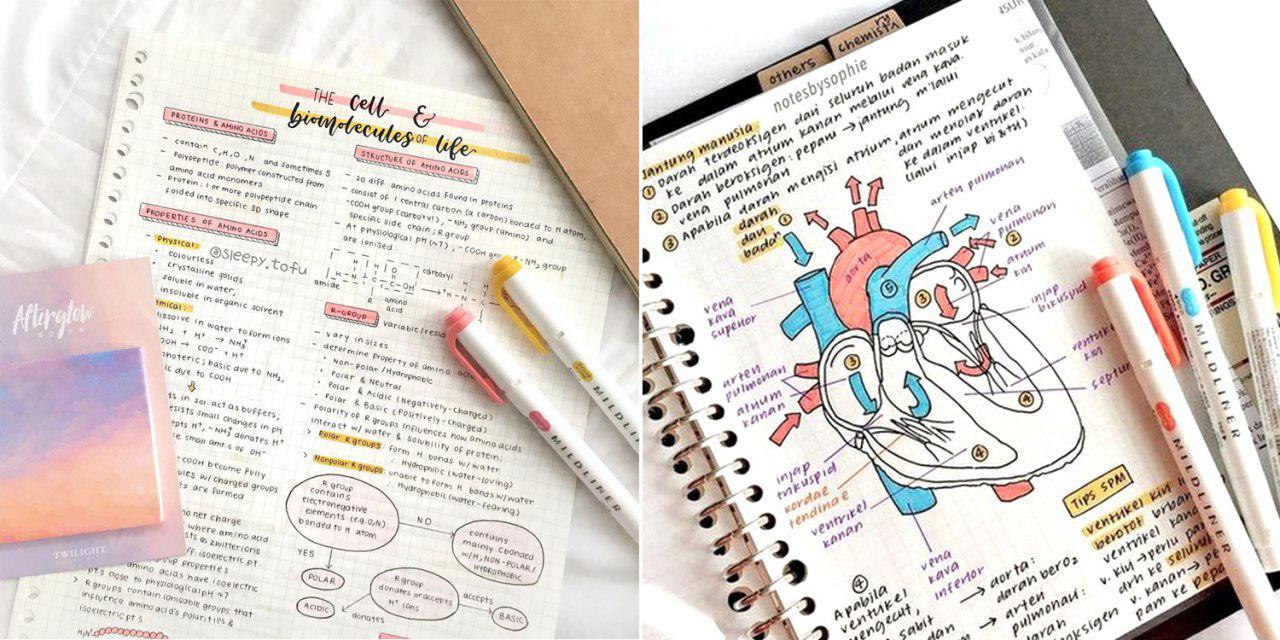 THE cell &
biomolecules OF life
PROTEINS & AMINO ACIDS
- contain C,H,O,N and sometimes S
- Polypeptide: polymer constructed from
amino acid monomers
- Protein: 1 or more polypeptide chain
folded into specific 3D shape
PROPERTIES OF AMINO ACIDS
Physical:
colourless
crystalline solids
soluble in water,
insoluble in organic solvent
@sleepy.tofu
dissolve in water to form ions
basic due to NH₂,
due to COOH
in sol. act as buffers,
small changes in pH
donates H⁺
small amts. of OH⁻
COOH become fully
w/ charged groups
are formed
no net charge
where amino acid
as zwitterions
isoelectric pt.
amino acids have isoelectric
pts close to physiological pH ≈ 7
> R groups contain ionisable groups that
influence amino acid's polarities &
isoelectric pt.s
H₃N⁺
STRUCTURE OF AMINO ACIDS
- 20 diff. amino acids found in proteins
- consist of 1 central carbon (α carbon) bonded to H atom,
-COOH group (carboxyl), -NH₂ group (amino) and
specific side chain; R group
- At physiological pH (≈7), -COOH group & -NH₂ group
are ionised:
carboxyl
amide
amino
acid
R-GROUP
variable/
- vary in sizes
- determine property of amino
• Non-Polar/Hydrophobic
• Polar & Neutral
• Polar & Acidic (Negatively-charged)
• Polar & Basic (Positively-charged)
- Polarity of R groups influences how amino acids
interact w/ water & solubility of protein:
> Polar R groups: form H bonds w/ water
∴ Hydrophilic (water-loving)
> Nonpolar R groups: unable to form H bonds w/ water
∴ Hydrophobic (water-fearing)
R group
contains
electronegative
elements (e.g. O,N)
bonded to H atom
NO
contains
mainly C bonded
w/ H, NON-POLAR/
HYDROPHOBIC
YES
POLAR
R group
donates or accepts
H⁺ ions
accepts
BASIC
donates
ACIDIC
Afterglow
TWILIGHT
MILDLINER
MILDLINER
others
chemistry
notesbysophie
jantung manusia
① Darah terdeoksigen dari seluruh badan masuk
ke dalam atrium kanan melalui vena kava.
② Darah beroksigen: pepar → jantung m'lalui
vena pulmonari
③ Apabila darah mengisi atrium, atrium mengecut
dan menolak darah
ke dalam ventrikel
(lalui injap b/t)
darah
dari
badan
①
arteri pulmonari
vena
pulmonari
②
aorta
⑤
atrium
kiri
vena
kava
superior
③
injap
bikuspid
③
ventrikel
kiri
arteri
pulmonari
atrium
kanan
septum
④
④
injap
trikuspid
kordae
tendinae
ventrikel
kanan
vena
kava
inferior
Tips SPM
ventrikel kiri
berotot
ventrikel
v. kiri → perlu
drh ke seluruh
v. kanan →
pam ke
④
Apabila
ventrikel
mengecut,
→ aorta:
darah berO₂
→ arteri
pulmonari:
MILDLINER
MILDLINER